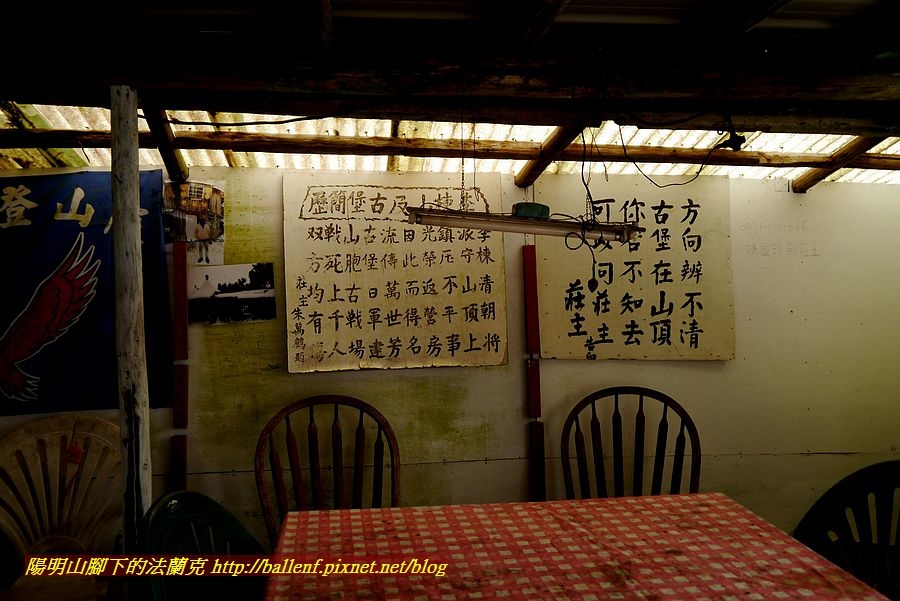 登山
李棟山及古堡簡歷
李棟清朝將
派守山頂上
鎮压不平事
光榮返營房
因此而得名
流傳萬世芳
古堡日軍建
山胞古戰場
戰死上千人
双方均有傷
莊主朱萬鶴題
方向辨不清
古堡在山頂
你若不知去
可以问莊主
莊主
陽明山腳下的法蘭克 http://ballenf.pixnet.net/blog